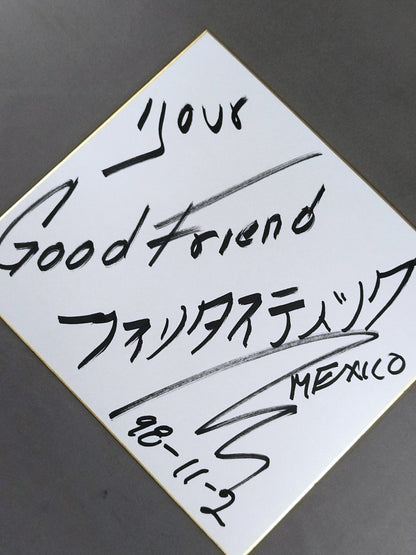 Your
Good Friend
ファンタスティック
MEXICO
98-11-2